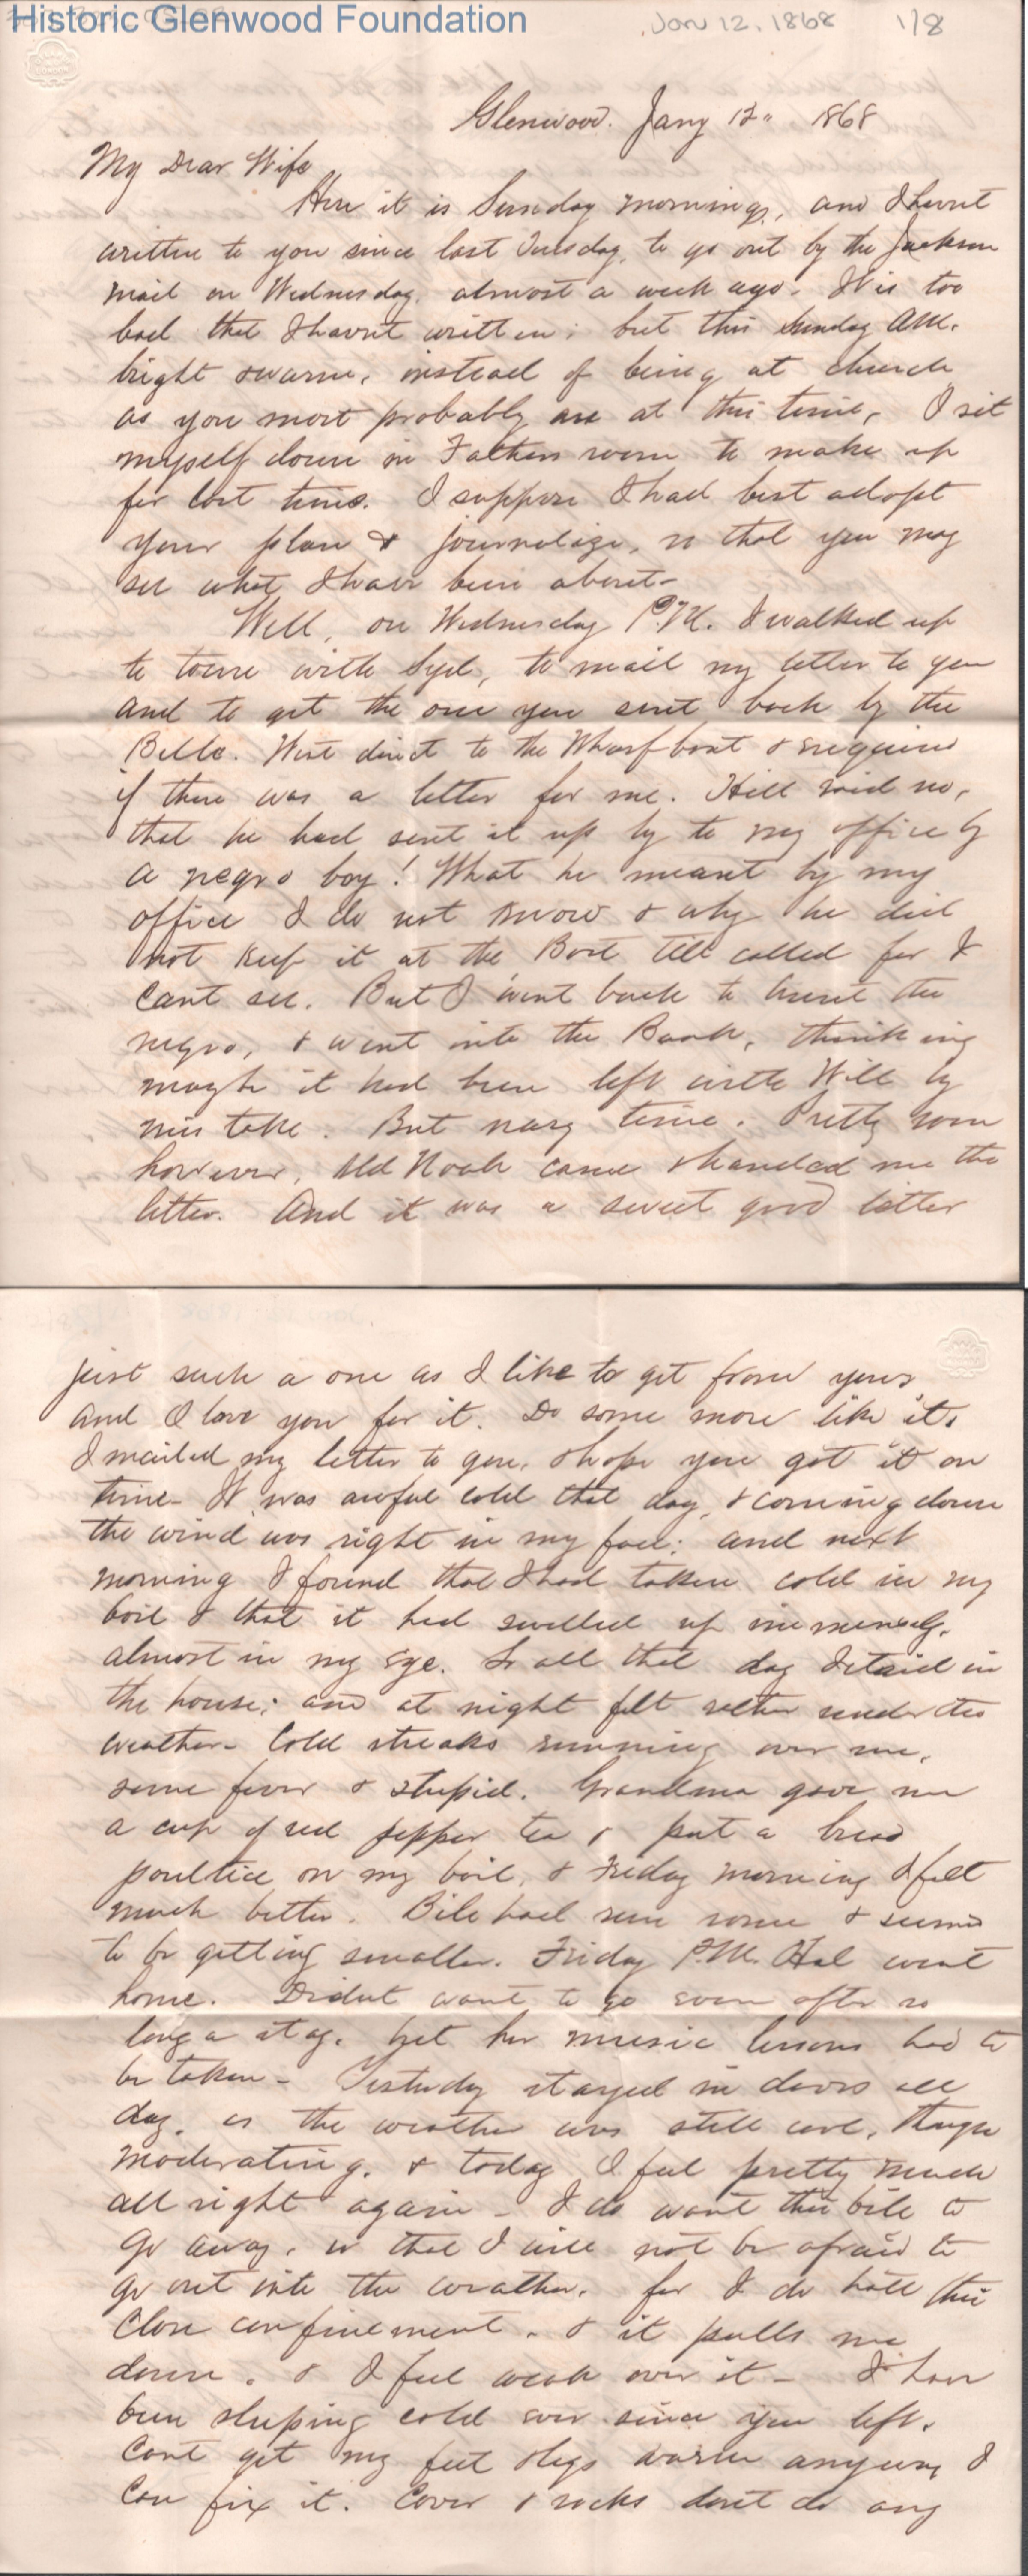 Historic Glenwood Foundation
Jan 12, 1868 1/8
Glenwood. Jany 12" 1868
My Dear Wife
Here it is Sunday morning, and I havnt
written to you since last Tuesday, to go out by the Jackson
mail on Wednesday, almost a week ago. It is too
bad that I havnt written; but this Sunday AM.
bright & warm, instead of being at church
as you most probably are at this time, I sit
myself down in Fathers room to make up
for lost time. I suppose I had best adopt
your plan & journalize, so that you may
see what I have been about-
Well, on Wednesday P.M. I walked up
to town with Syd, to mail my letter to you
and to get the one you sent back by the
Belle. Went direct to the Wharf boat & enquired
if there was a letter for me. Hill said no,
that he had sent it up by to my office by
a negro boy! What he meant by my
office I do not know & why he did
not keep it at the Boat till called for I
cant see. But I went back to hunt the
negro, & went into the Bank, thinking
maybe it had been left with Will by
mistake. But nary time. Pretty soon
however, old Noah came & handed me the
letter. And it was a sweet good letter
just such a one as I like to get from you,
and I love you for it. Do some more like it.
I mailed my letter to you, & hope you got it on
time- It was awful cold that day, & coming down
the wind was right in my face; and next
morning I found that I had taken cold in my
boil & that it had swelled up immensely,
almost in my eye. So all that day I staid in
the house; and at night felt rather under the
weather- Cold streaks running over me,
some fever & stupid. Grandma gave me
a cup of red pepper tea & put a bread
poultice on my boil, & Friday morning I felt
much better. Bile had run some & seemed
to be getting smaller. Friday P.M. Hal went
home. Didnt want to go even after so
long a stay. but her music lessons had to
be taken- Yesterday stayed in doors all
day, as the weather was still cool, though
moderating, & today I feel pretty much
all right again- I do want this bile to
go away, so that I will not be afraid to
go out into the weather, for I do hate this
close confinement, & it pulls me
down, & I feel weak over it- I have
been sleeping cold ever since you left.
Cant get my feet & legs warm anyway I
can fix it. Cover & socks dont do any